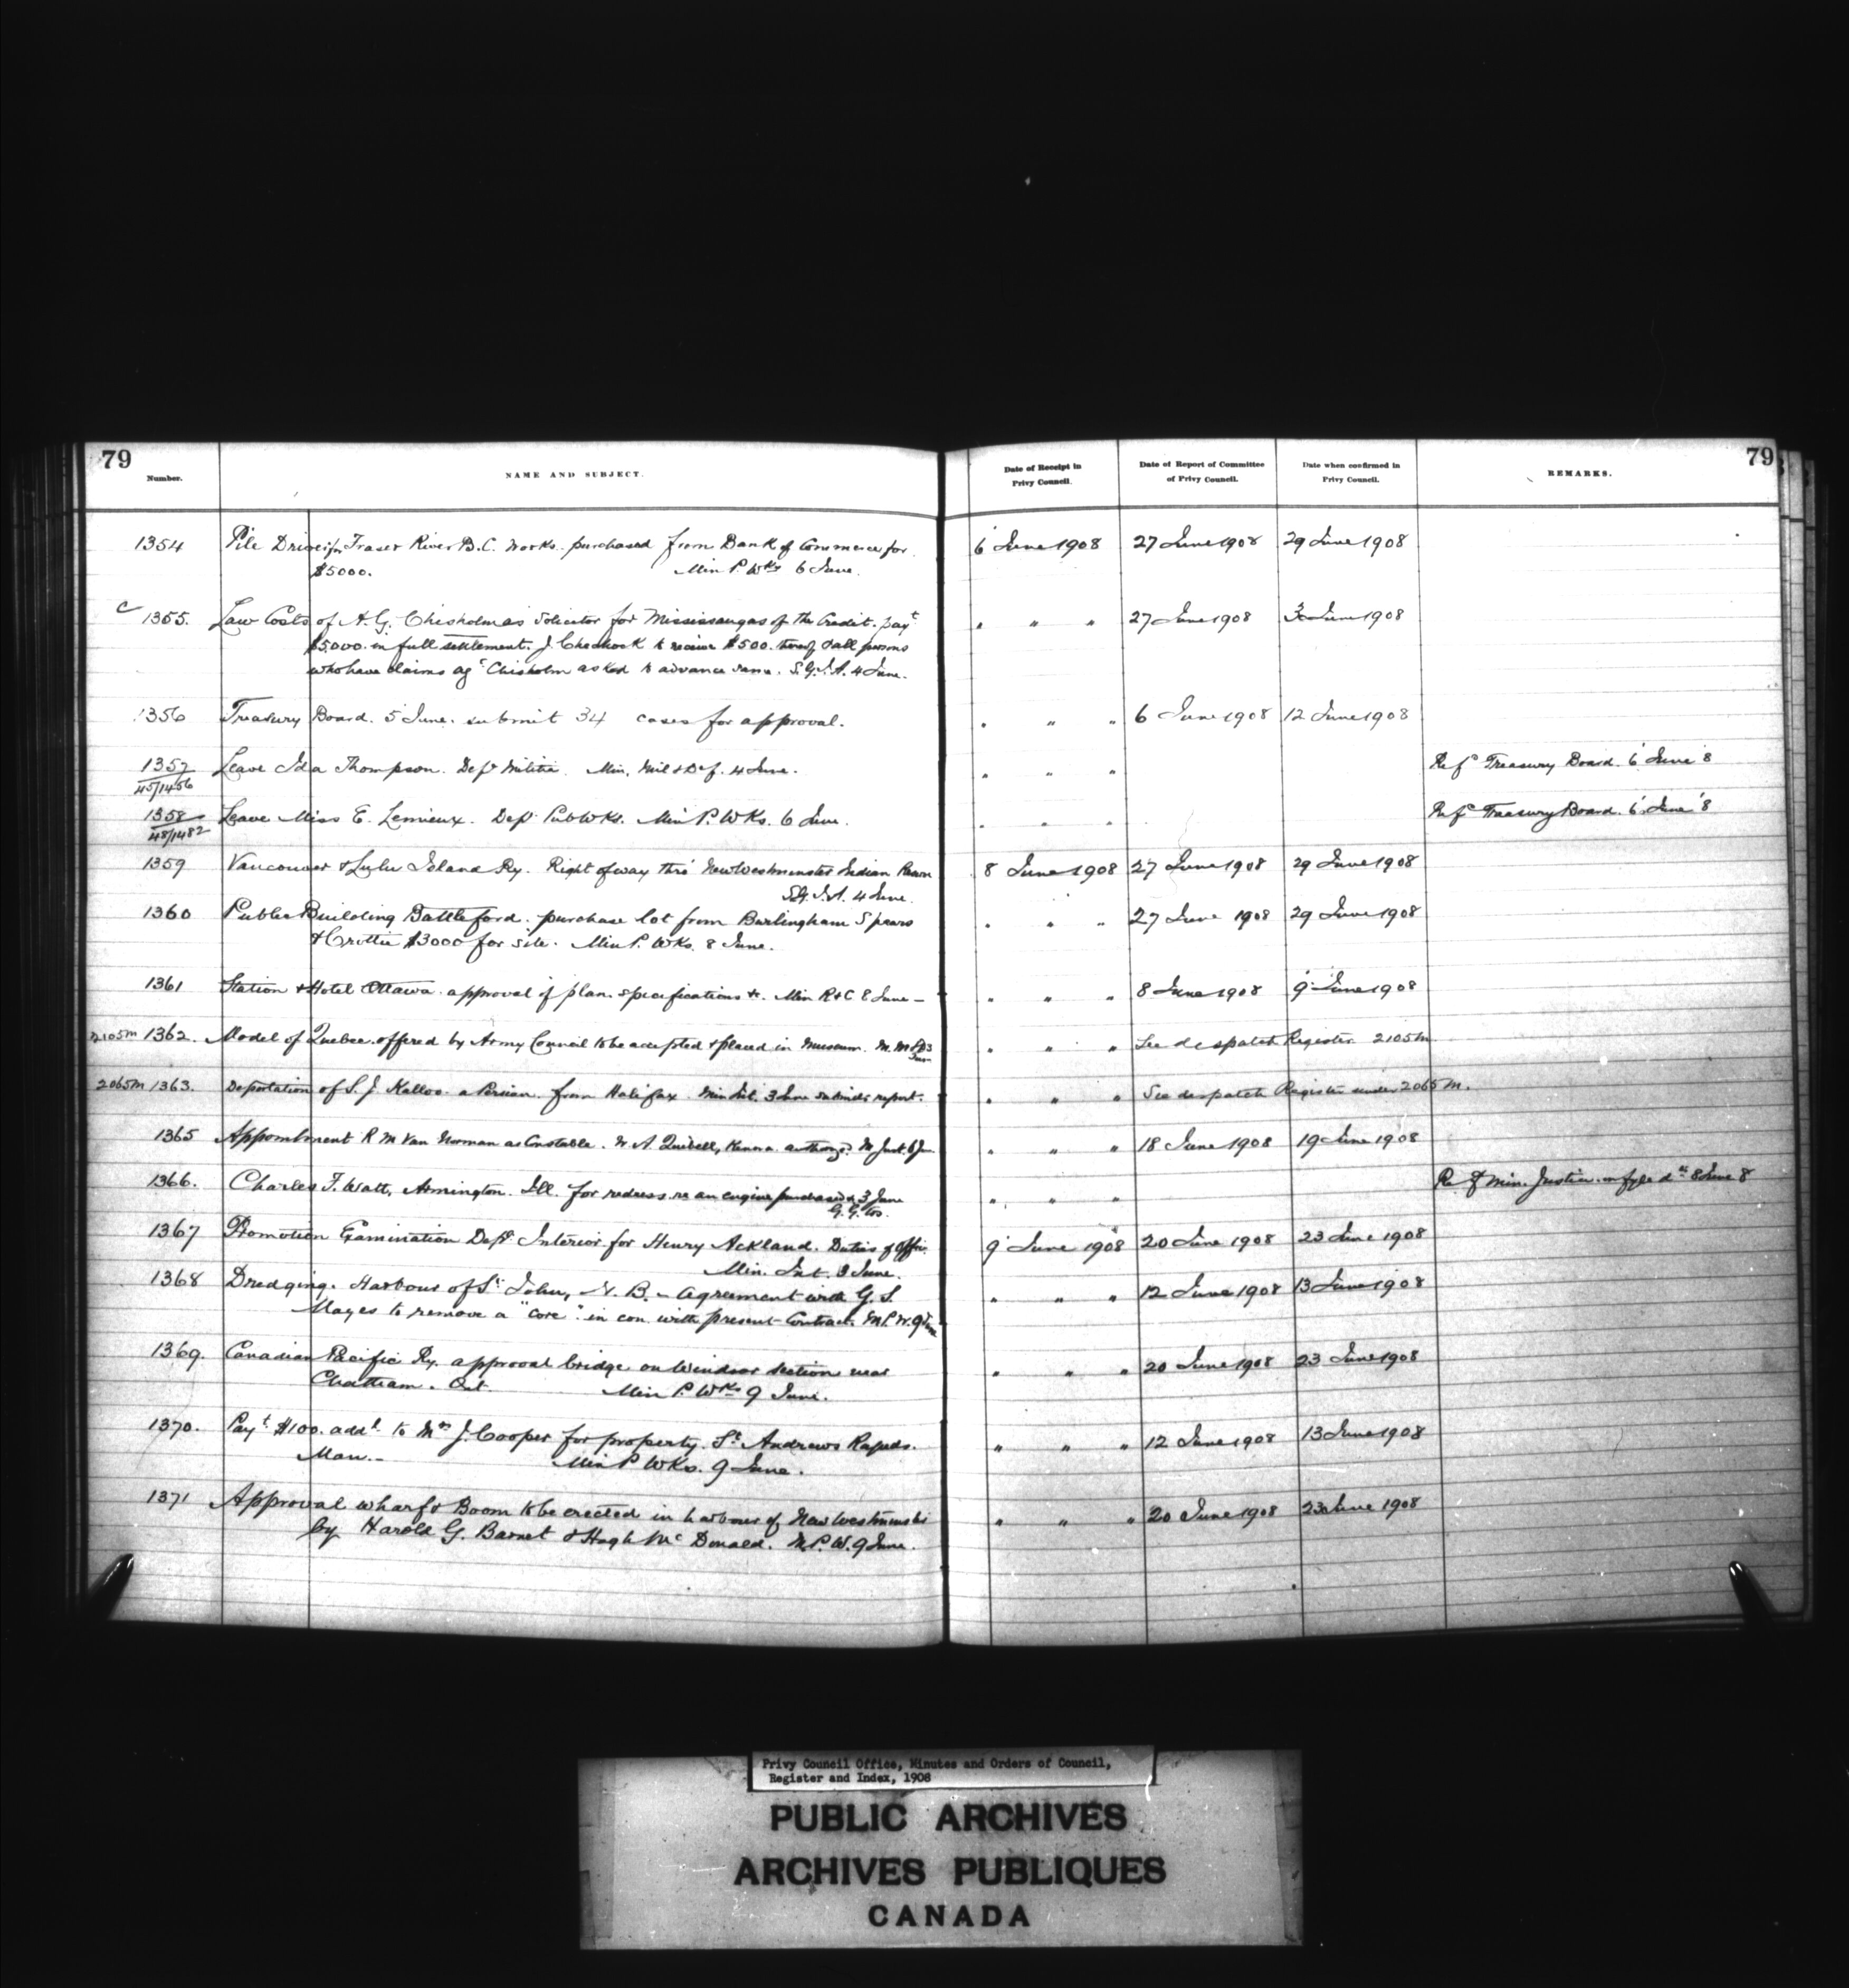 79 79
Number. NAME AND SUBJECT. Date of Receipt in Privy Council. Date of Report of Committee of Privy Council. Date when confirmed in Privy Council. REMARKS.
1354 Pile Driver for Fraser River B.C. Works. purchased from Bank of Commerce for 6 June 1908 27 June 1908 29 June 1908
$5000. Min P. Wks 6 June.
c 1355. Law Costs of A. G. Chisholm as Solicitor for Mississaugas of the Credit. payt " " " 27 June 1908 June 1908
$5000. in full settlement. J. to receive $500. thereof & all persons
who have claims agt Chisholm asked to advance same. S.G.I.A. 4 June.
1356 Treasury Board. 5 June. submit 34 cases for approval. " " " 6 June 1908 12 June 1908
1357 Leave Ida Thompson. Dept Militia. Min. Mil & Def. 4 June. " " " Refd Treasury Board. 6 June '8
45/1456
1358 Leave Miss E. Lemieux. Dept PubWks. Min P. WKs. 6 June. " " " Refd Treasury Board. 6 June '8
48/1482
1359 Vancouver & Lulu Island Ry. Right of way thro' New Westminster Indian Reserve 8 June 1908 27 June 1908 29 June 1908
S.G.I.A. 4 June.
1360 Public Building Battleford. purchase lot from Burlingham Spears " " " 27 June 1908 29 June 1908
& Crottie $3000 for site. Min P. WKs. 8 June.
1361 Station & Hotel Ottawa. approval of plan. specifications &c. Min R & C 8 June — " " " 8 June 1908 9 June 1908
2105M 1362. Model of Quebec. offered by Army Council to be accepted & placed in Museum. M. M & D 3 " " " See despatch Register 2105M
June
2065M 1363. Deportation of S. J. Kalloo a Persian. from Halifax. Min Int. 3 June submits report. " " " See despatch Register under 2065 M.
1365 Appointment R M Van Norman as Constable. W. A. Quibell, Kenora authorizn. M Just. 6 Jun " " " 18 June 1908 19 June 1908
1366. Charles T. Watt, Armington. Ill. for redress re an engine purchased 3 June " " " Min. Justice. on fyle dn 8 June 8
G. G. Co.
1367 Promotion Examination Dept. Interior for Henry Ackland. Duties of Office. 9 June 1908 20 June 1908 23 June 1908
Min. Int. 3 June.
1368 Dredging. Harbour of St. John, N. B. — Agreement with G. S. " " " 12 June 1908 13 June 1908
Mayes to remove a "core" in con. with present Contract. M.P.W. 9 June
1369. Canadian Pacific Ry. approval bridge on Windsor section near " " " 20 June 1908 23 June 1908
Chatham. Ont. Min P. Wks 9 June.
1370. Payt $100. addl. to Mrs J. Cooper for property. St. Andrews Rapids. " " " 12 June 1908 13 June 1908
Man. — Min P WKs. 9 June.
1371 Approval wharf & Boom to be erected in harbour of New Westminster " " " 20 June 1908 23 June 1908
by Harold G. Barnet & Hugh McDonald. M.P.W. 9 June.
Privy Council Office, Minutes and Orders of Council,
Register and Index, 1908
PUBLIC ARCHIVES
ARCHIVES PUBLIQUES
CANADA